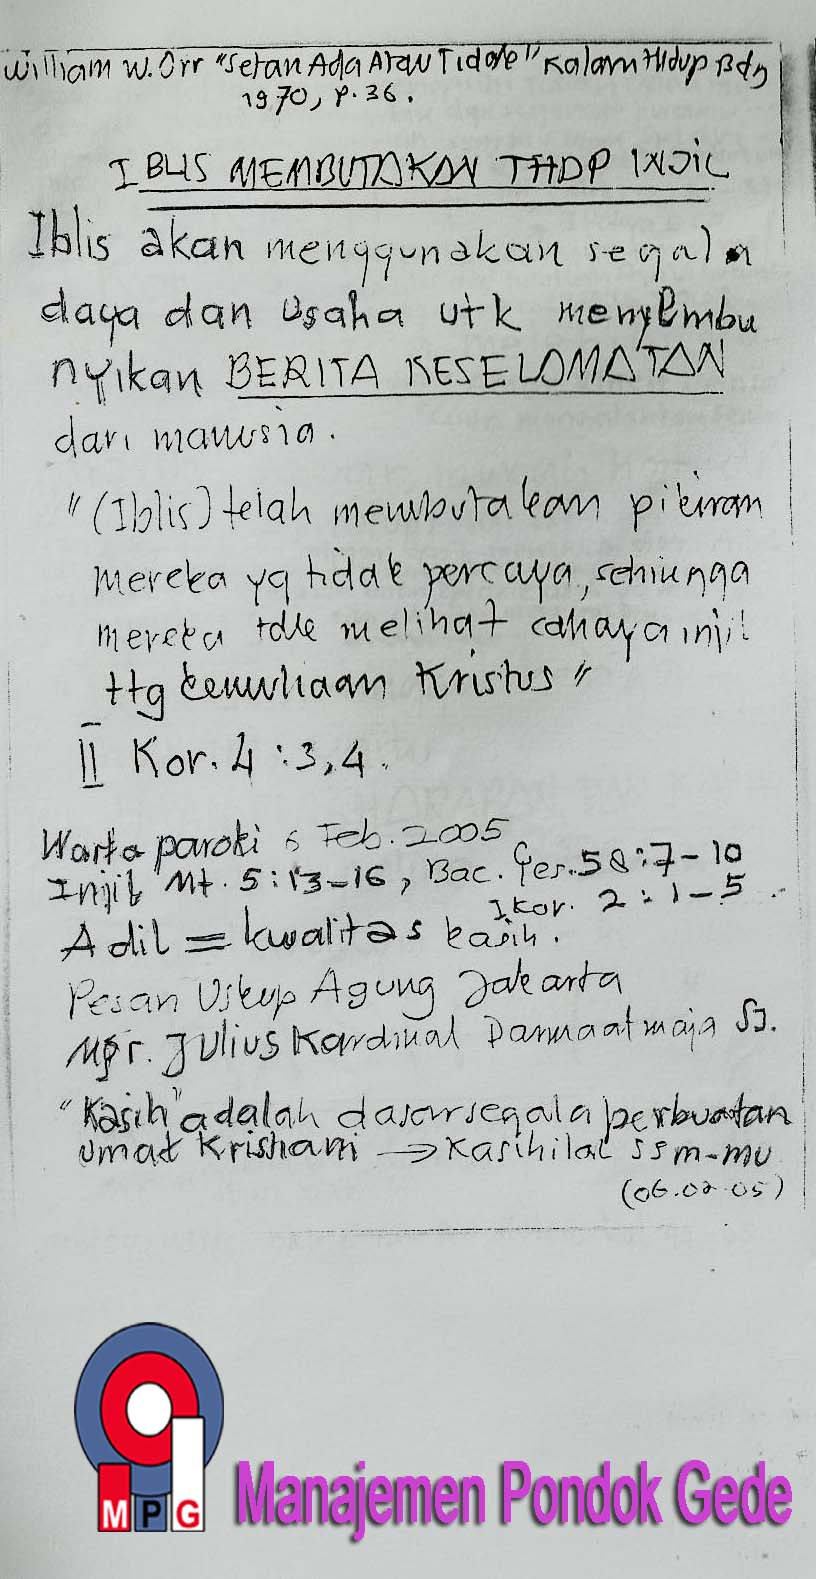 William W. Orr "Setan Ada Atau Tidak" Kalam Hidup Bdg
1970, p. 36.
IBLIS MEMBUTAKAN THDP INJIL
Iblis akan menggunakan segala
daya dan usaha utk menyembu
nyikan BERITA KESELAMATAN
dari manusia.
"(Iblis) telah membutakan pikiran
mereka yg tidak percaya, sehingga
mereka tdk melihat cahaya injil
ttg kemuliaan Kristus"
II Kor. 4 : 3,4.
Warta paroki 6 Feb. 2005
Injil Mt. 5 : 13-16, Bac. Yes. 58 : 7-10
I kor. 2 : 1-5
Adil = kwalitas kasih.
Pesan Uskup Agung Jakarta
Mgr. Julius Kardinal Darmaatmaja SJ.
"Kasih" adalah dasar segala perbuatan
umat Kristiani → Kasihilah ssm-mu
(06.02.05)
MPG Manajemen Pondok Gede